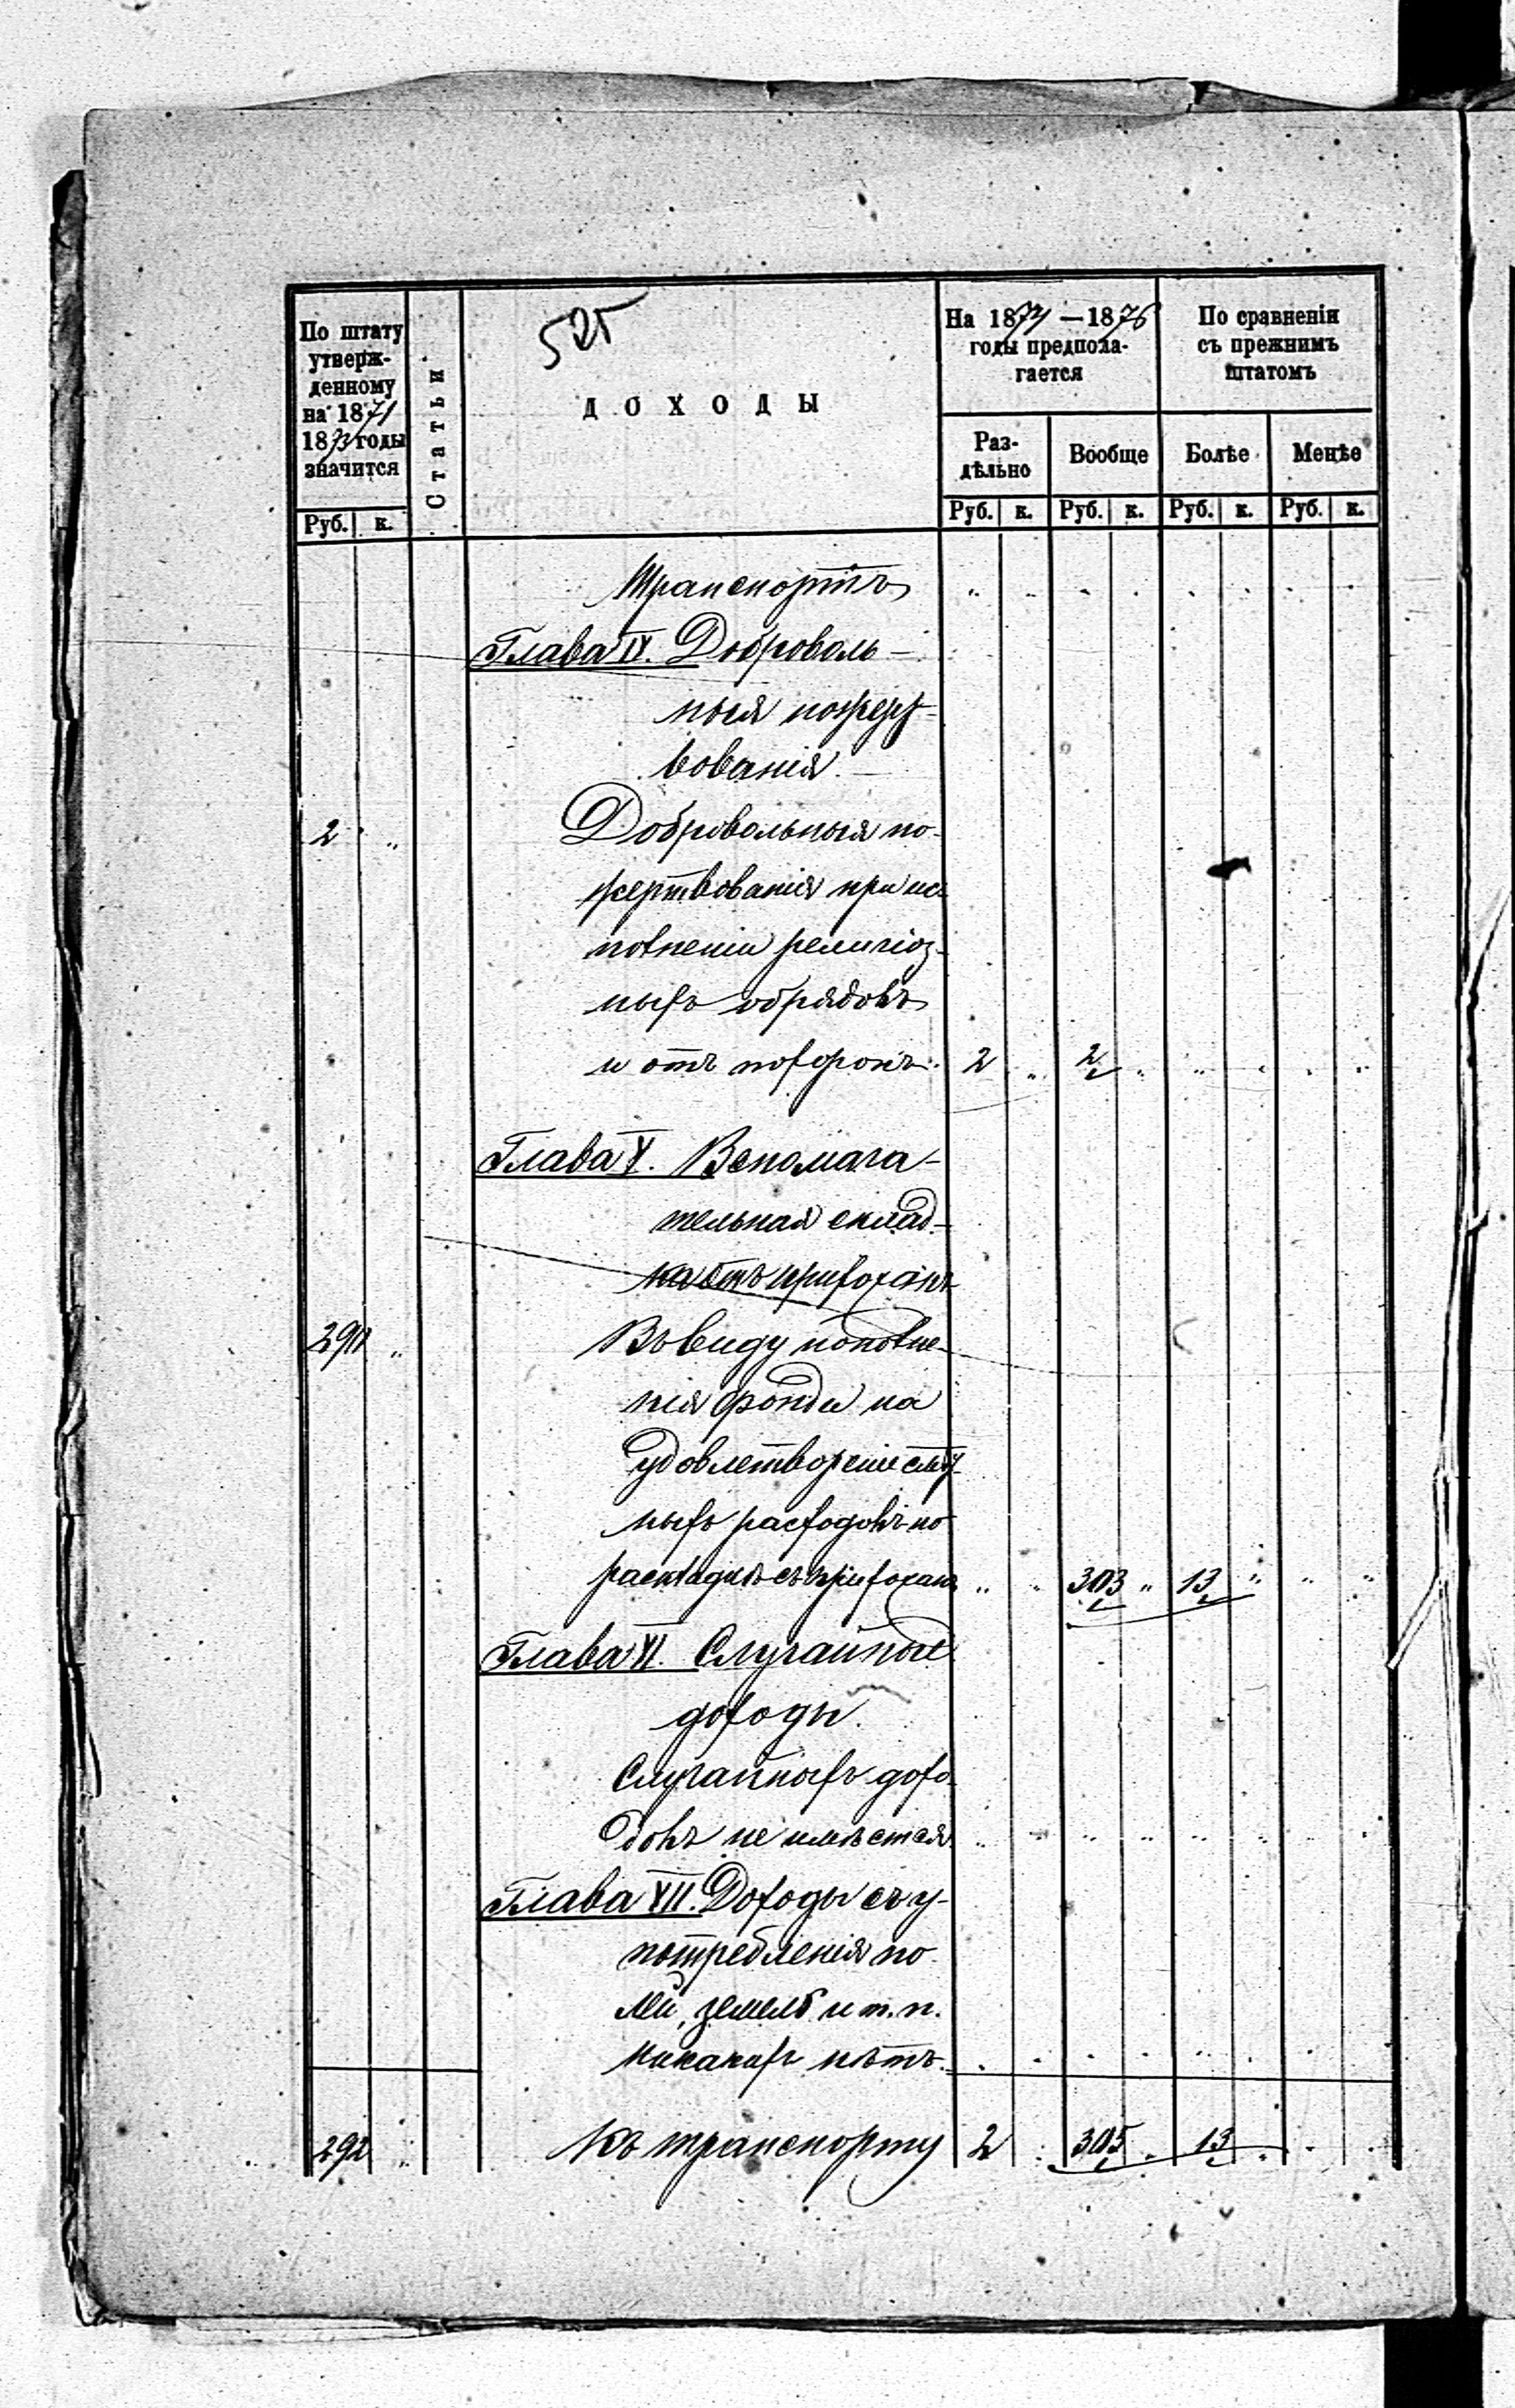 525
По штату
утверж-
денному
на 1871
1873 годы
значится
Статьи
ДОХОДЫ
На 1874 — 1876
годы предпола-
гается
По сравненiи
съ прежнимъ
штатомъ
Раз-
дѣльно
Вообще
Болѣе
Менѣе
Руб. к.
Руб. к.
Руб. к.
Руб. к.
Руб. к.
Транспортъ „ „ „ „ „ „ „ „
Глава IV. Доброволь-
ныя пожерт-
вованiя.
2 „ Добровольныя по-
жертвованiя при ис-
полненiи религiоз-
ныхъ обрядовъ
и отъ похоронъ. 2 „ 2 „ „ „ „ „
Глава V. Вспомога-
тельная склад-
ка отъ прихожанъ
290 „ Въ виду пополне-
нiя фонда на
удовлетворенiе смѣт-
ныхъ расходовъ по
раскладкѣ съ прихожанъ „ „ 303 „ 13 „ „ „
Глава VI. Случайные
доходы.
Случайныхъ дохо-
довъ не имѣется „ „ „ „ „ „ „ „
Глава VII. Доходы съ у-
потребленiя по-
лей, земель и т. п.
никакихъ нѣтъ. „ „ „ „ „ „ „ „
292 „ Къ транспорту 2 „ 305 „ 13 „ „ „